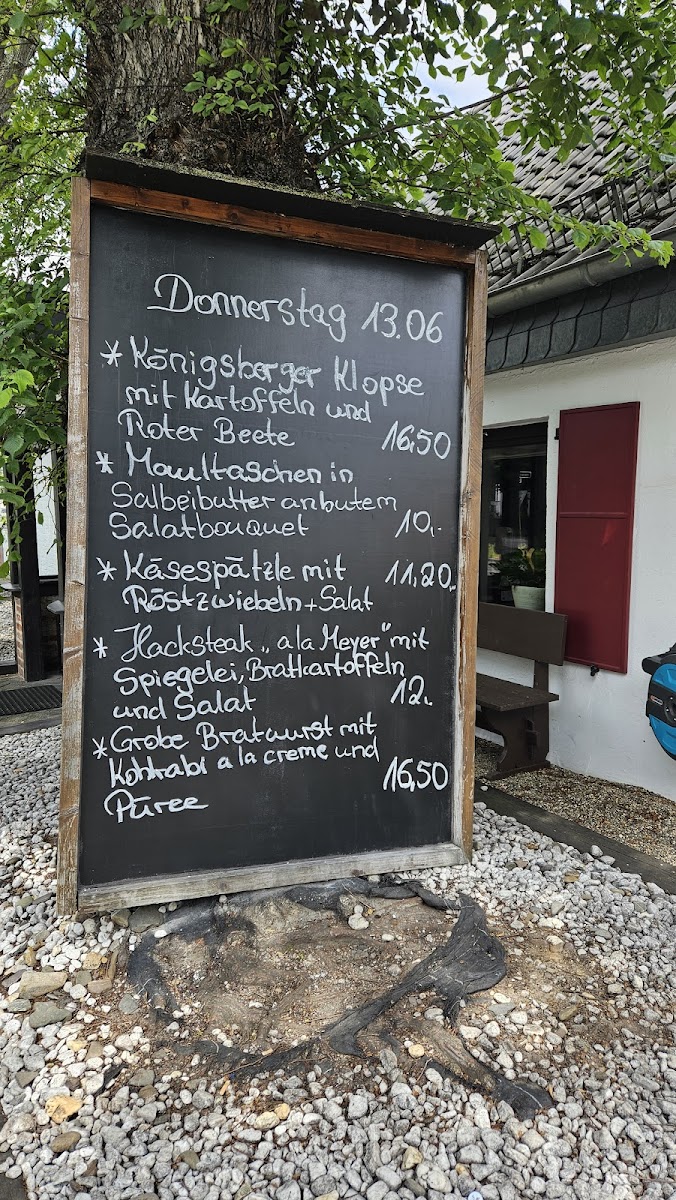 Donnerstag 13.06
* Königsberger Klopse
mit Kartoffeln und
Roter Beete 16,50
* Maultaschen in
Salbeibutter an butem
Salatbouquet 10,-
* Käsespätzle mit 11,20,-
Röstzwiebeln + Salat
* Hacksteak „a la Meyer" mit
Spiegelei, Bratkartoffeln
und Salat 12,-
* Grobe Bratwurst mit
Kohlrabi a la creme und
Püree 16,50